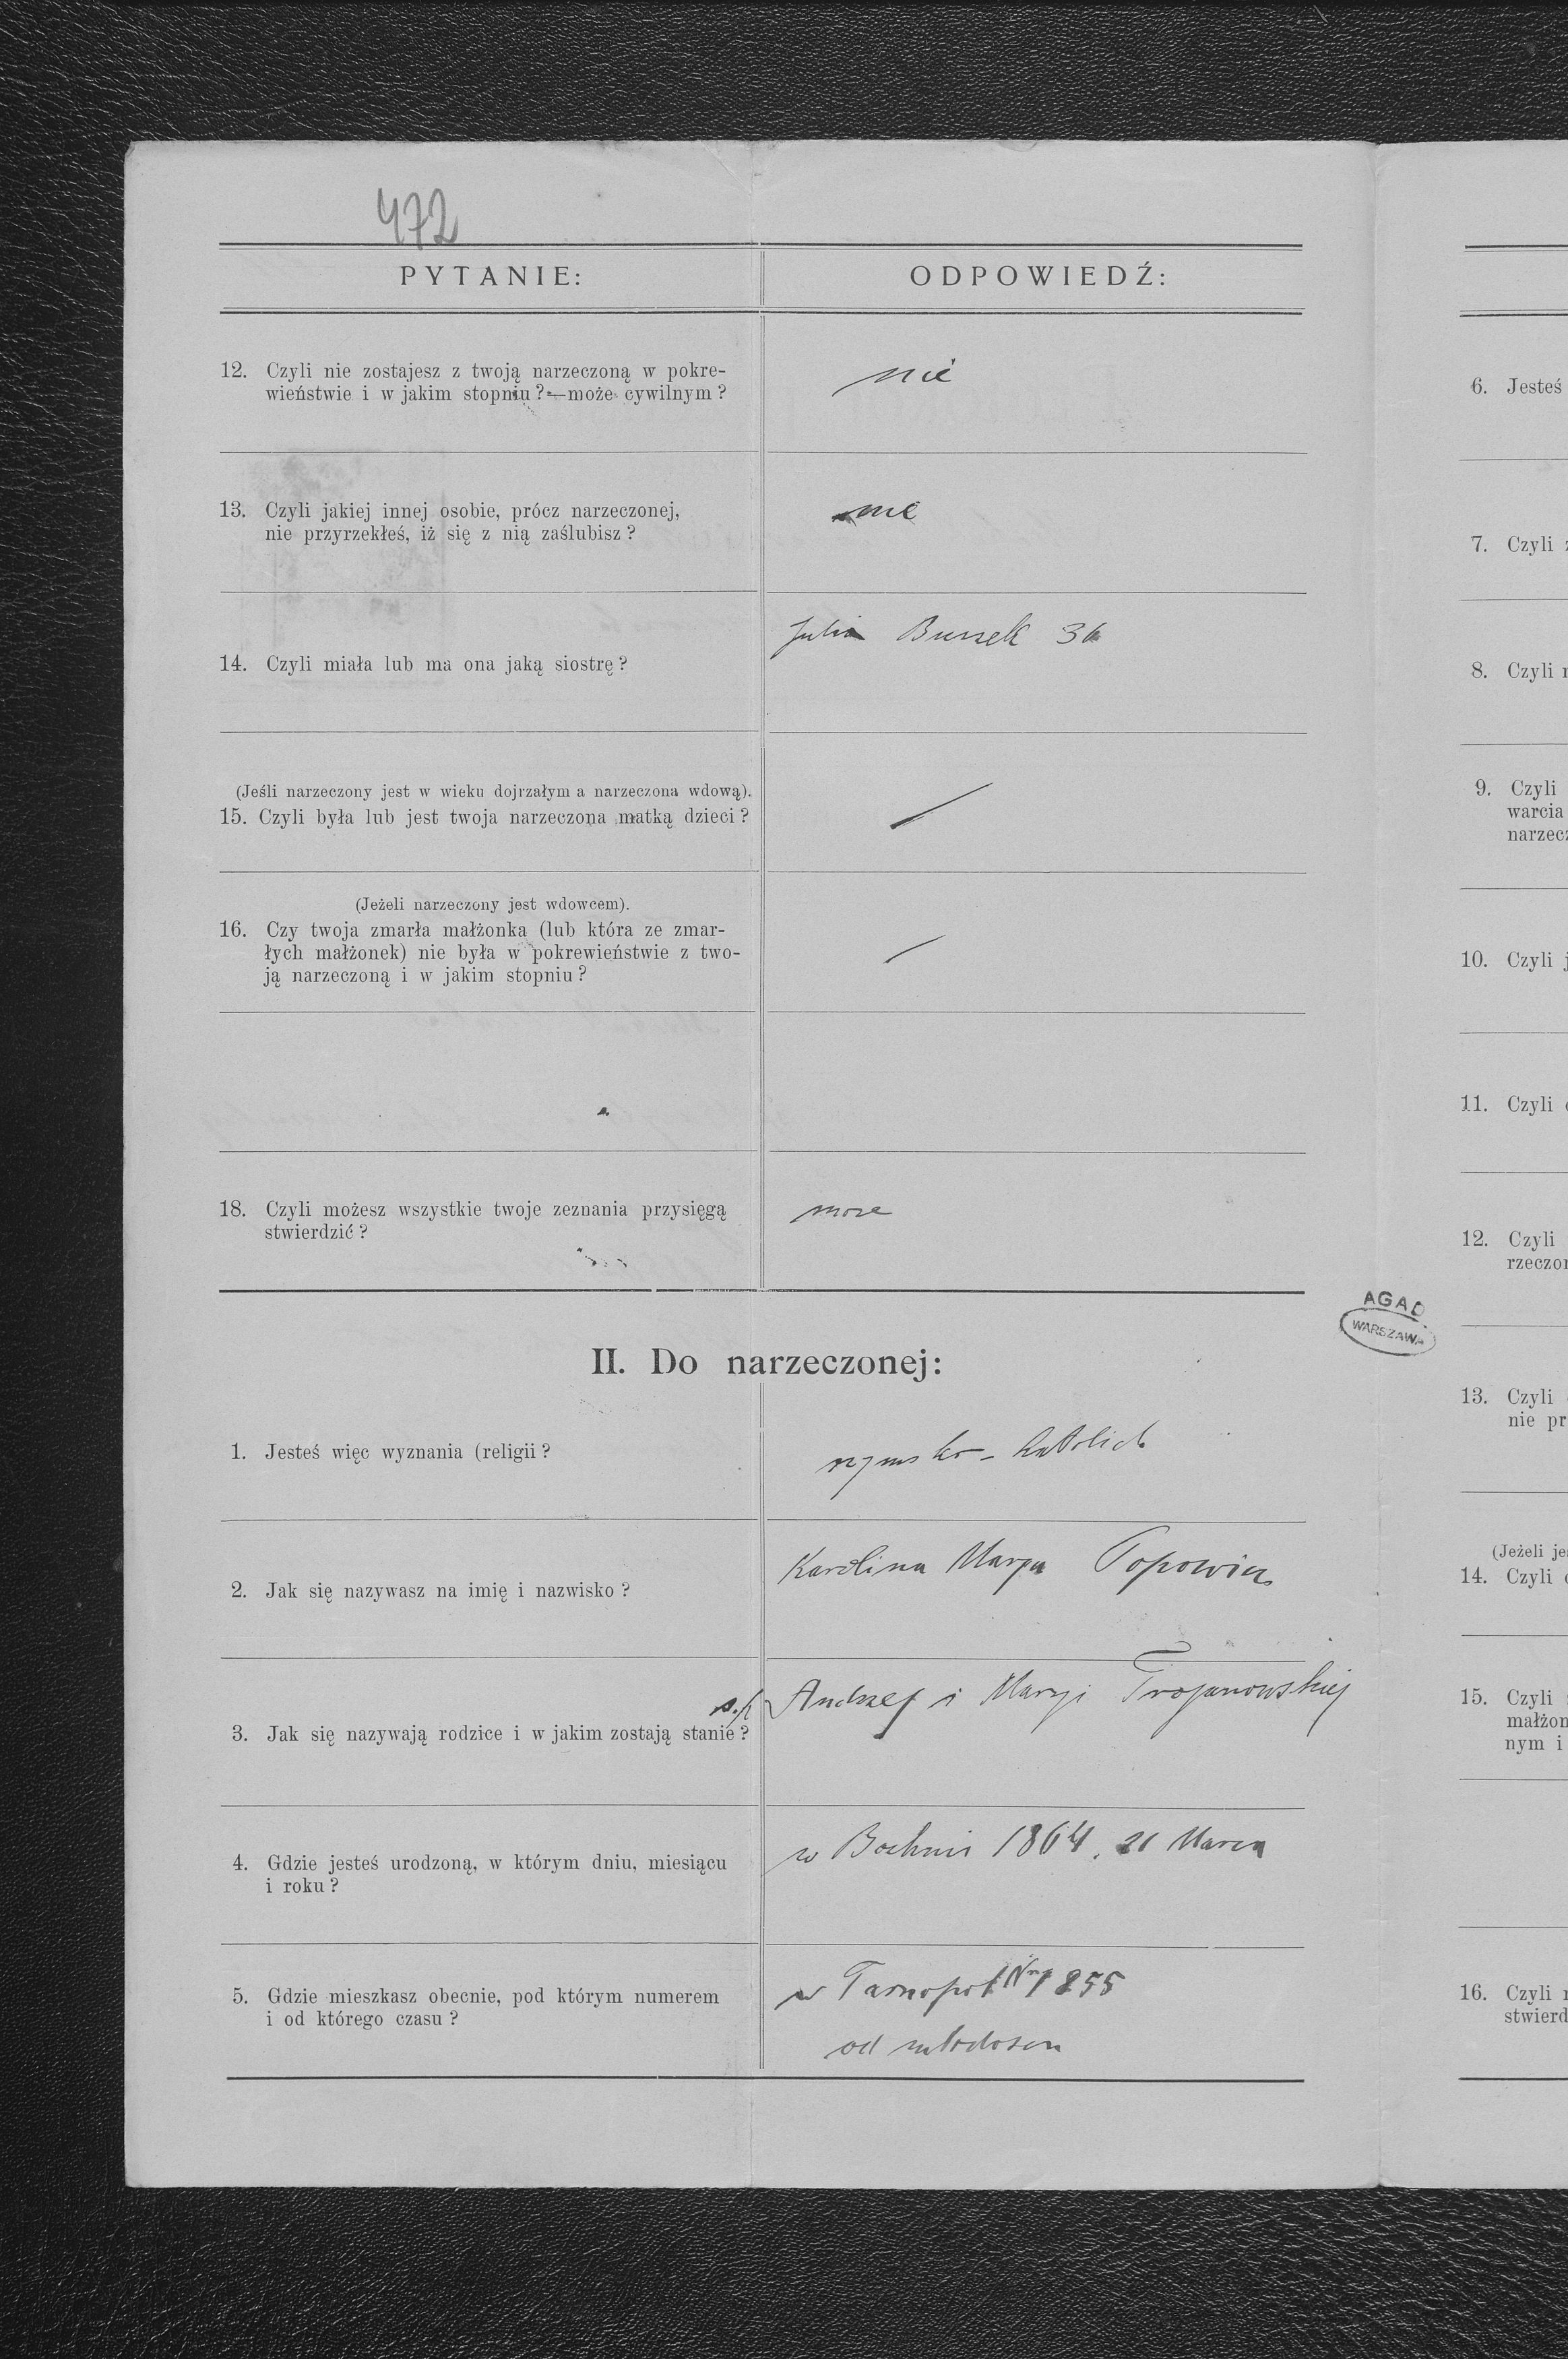 472
PYTANIE: ODPOWIEDŹ:
12. Czyli nie zostajesz z twoją narzeczoną w pokre-
wieństwie i w jakim stopniu? — może cywilnym?
nie
13. Czyli jakiej innej osobie, prócz narzeczonej,
nie przyrzekłeś, iż się z nią zaślubisz?
nie
Julia 36
14. Czyli miała lub ma ona jaką siostrę?
(Jeśli narzeczony jest w wieku dojrzałym a narzeczona wdową).
15. Czyli była lub jest twoja narzeczona matką dzieci?
(Jeżeli narzeczony jest wdowcem).
16. Czy twoja zmarła małżonka (lub która ze zmar-
łych małżonek) nie była w pokrewieństwie z two-
ją narzeczoną i w jakim stopniu?
18. Czyli możesz wszystkie twoje zeznania przysięgą
stwierdzić?
może
II. Do narzeczonej:
1. Jesteś więc wyznania (religii?
rzymsko-katolick
2. Jak się nazywasz na imię i nazwisko?
Karolina Marya Popowicz
3. Jak się nazywają rodzice i w jakim zostają stanie?
ś.p. Andrzej i Maryi Trojanowskiej
4. Gdzie jesteś urodzoną, w którym dniu, miesiącu
i roku?
w Bochni 1864. 21 Marca
5. Gdzie mieszkasz obecnie, pod którym numerem
i od którego czasu?
w Tarnopol Nr 1855
od młodości
AGAD
WARSZAWA
6. Jesteś
7. Czyli
8. Czyli
9. Czyli
warcia
narzecz
10. Czyli
11. Czyli
12. Czyli
rzeczon
13. Czyli
nie pr
(Jeżeli je
14. Czyli
15. Czyli
małżon
nym i
16. Czyli
stwierd